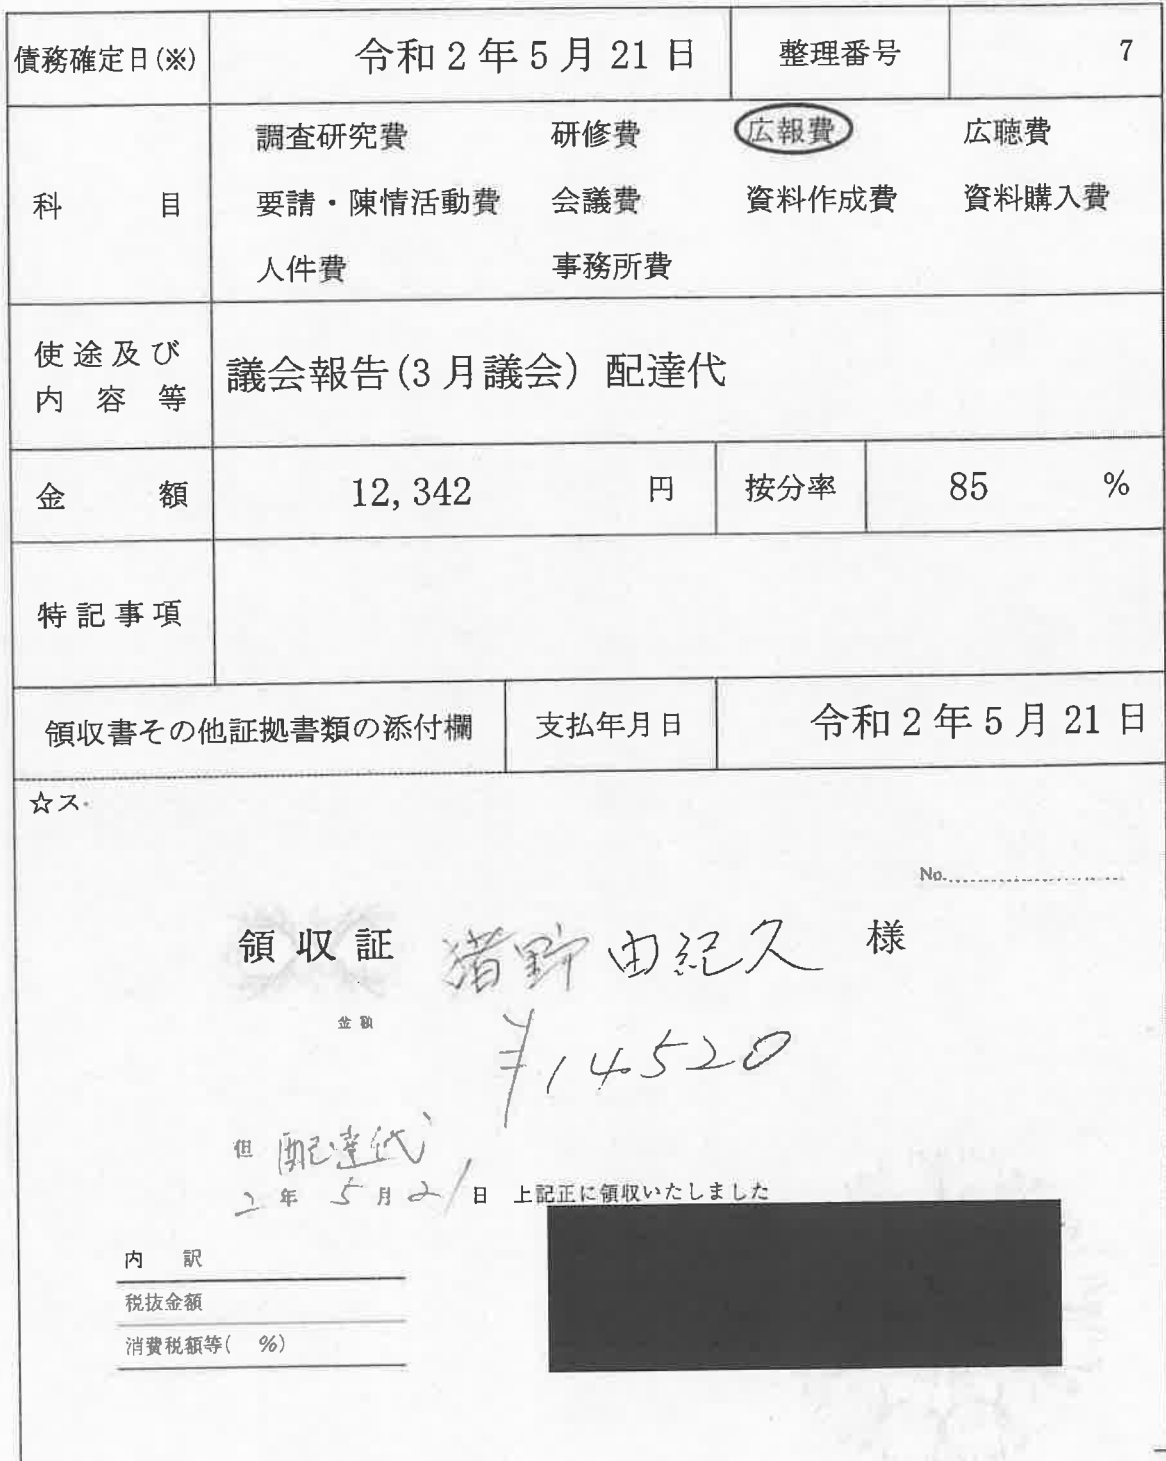 債務確定日(※) 令和2年5月21日 整理番号 7
科目 調査研究費 研修費 広報費 広聴費
要請・陳情活動費 会議費 資料作成費 資料購入費
人件費 事務所費
使途及び内容等 議会報告(3月議会)配達代
金額 12,342 円 按分率 85 %
特記事項
領収書その他証拠書類の添付欄 支払年月日 令和2年5月21日
☆ス
No.
領収証 猪野由紀久 様
金額 ¥14520
但 配達代
2年5月21日 上記正に領収いたしました
内訳
税抜金額
消費税額等( %)